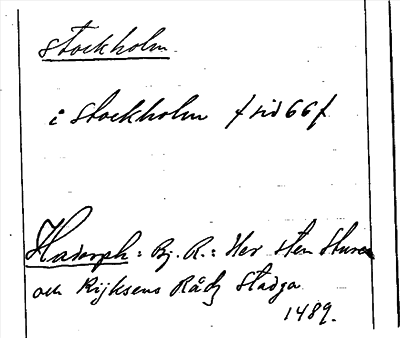 Stockholm.
i Stockholm f sid 66 f.
Hadorph: Bj. R.: Her Sten Sture
och Rijksens Rådz Stadga
1489.